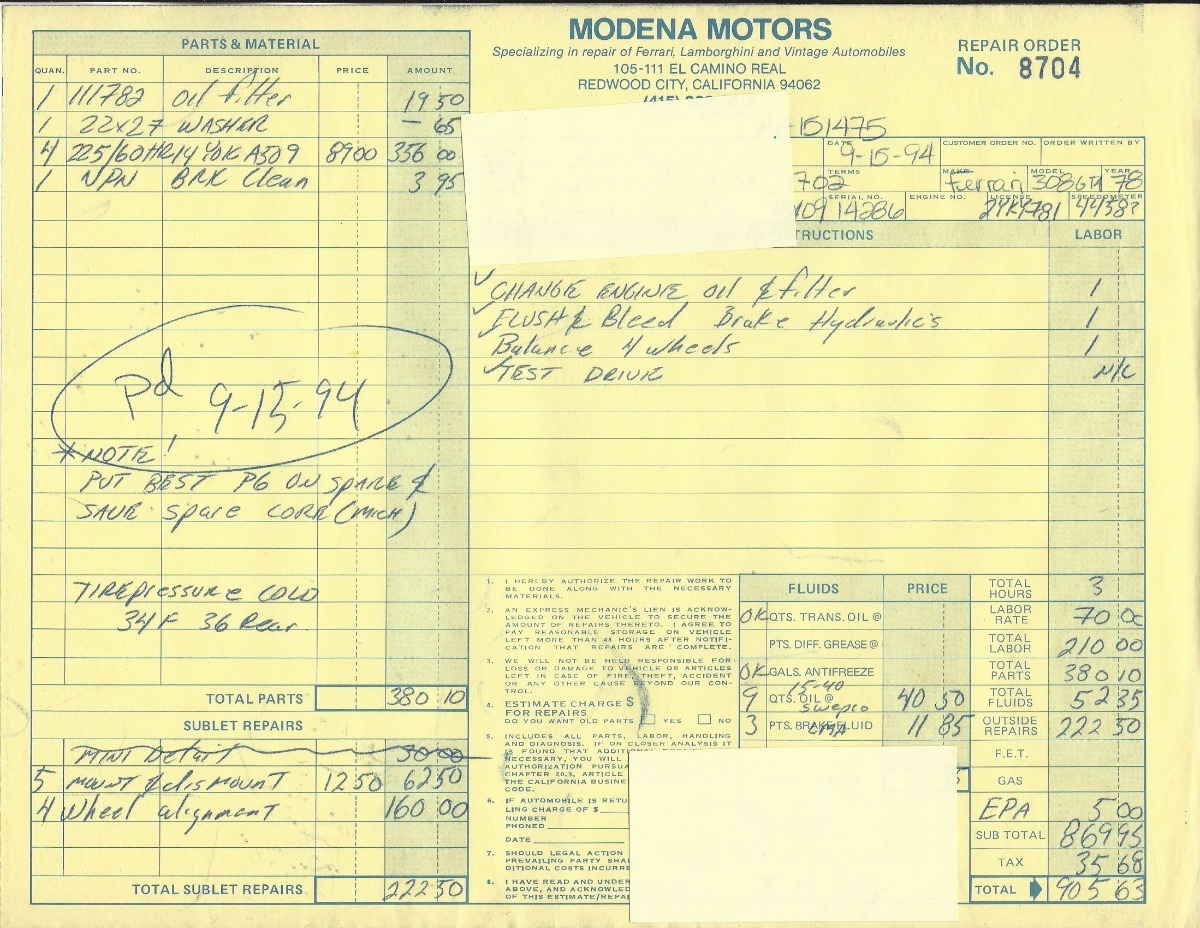 MODENA MOTORS
Specializing in repair of Ferrari, Lamborghini and Vintage Automobiles
105-111 EL CAMINO REAL
REDWOOD CITY, CALIFORNIA 94062
REPAIR ORDER
No. 8704
PARTS & MATERIAL
QUAN. PART NO. DESCRIPTION PRICE AMOUNT
1 111782 oil filter 19 50
1 22x27 WASHER — 65
4 225/60HR14 YOK A509 89 00 356 00
1 NPN BRK Clean 3 95
Pd 9-15-94
* NOTE!
PUT BEST P6 ON SPARE &
SAVE Spare CORE (MICH)
TIRE pressure COLD
34 F 36 Rear
TOTAL PARTS 380 10
SUBLET REPAIRS
MINI Detail 30 00
5 MOUNT & dismount 12 50 62 50
4 Wheel alignment 160 00
TOTAL SUBLET REPAIRS 222 50
-151475
DATE 9-15-94 CUSTOMER ORDER NO. ORDER WRITTEN BY
702 TERMS MAKE Ferrari MODEL 308GT4 YEAR 78
SERIAL NO. 09 14286 ENGINE NO. LICENSE SPEEDOMETER
TRUCTIONS LABOR
CHANGE ENGINE oil & filter 1
FLUSH & Bleed Brake Hydraulics 1
Balance 4 wheels 1
TEST DRIVE N/C
1. I HEREBY AUTHORIZE THE REPAIR WORK TO
BE DONE ALONG WITH THE NECESSARY
MATERIALS.
2. AN EXPRESS MECHANIC'S LIEN IS ACKNOW-
LEDGED ON THE VEHICLE TO SECURE THE
AMOUNT OF REPAIRS THERETO. I AGREE TO
PAY REASONABLE STORAGE ON VEHICLE
LEFT MORE THAN 48 HOURS AFTER NOTIFI-
CATION THAT REPAIRS ARE COMPLETE.
3. WE WILL NOT BE HELD RESPONSIBLE FOR
LOSS OR DAMAGE TO VEHICLE OR ARTICLES
LEFT IN CASE OF FIRE, THEFT, ACCIDENT
OR ANY OTHER CAUSE BEYOND OUR CON-
TROL.
4. ESTIMATE CHARGE $
FOR REPAIRS
DO YOU WANT OLD PARTS YES NO
5. INCLUDES ALL PARTS, LABOR, HANDLING
AND DIAGNOSIS. IF ON CLOSER ANALYSIS IT
IS FOUND THAT ADDITIO
NECESSARY, YOU WILL
AUTHORIZATION PURSUA
CHAPTER 20.3, ARTICLE
THE CALIFORNIA BUSINE
CODE.
6. IF AUTOMOBILE IS RETU
LING CHARGE OF $
NUMBER
PHONED
DATE
7. SHOULD LEGAL ACTION
PREVAILING PARTY SHA
DITIONAL COSTS INCURRE
8. I HAVE READ AND UNDER
ABOVE, AND ACKNOWLED
OF THIS ESTIMATE/REPAI
FLUIDS PRICE
OK QTS. TRANS. OIL @
PTS. DIFF. GREASE @
OK GALS. ANTIFREEZE
9 QTS. OIL @ 15-40 Swepco 40 50
3 PTS. BRAKE FLUID 11 85
TOTAL HOURS 3
LABOR RATE 70 00
TOTAL LABOR 210 00
TOTAL PARTS 380 10
TOTAL FLUIDS 52 35
OUTSIDE REPAIRS 222 50
F.E.T.
GAS
EPA 5 00
SUB TOTAL 869 95
TAX 35 68
TOTAL 905 63